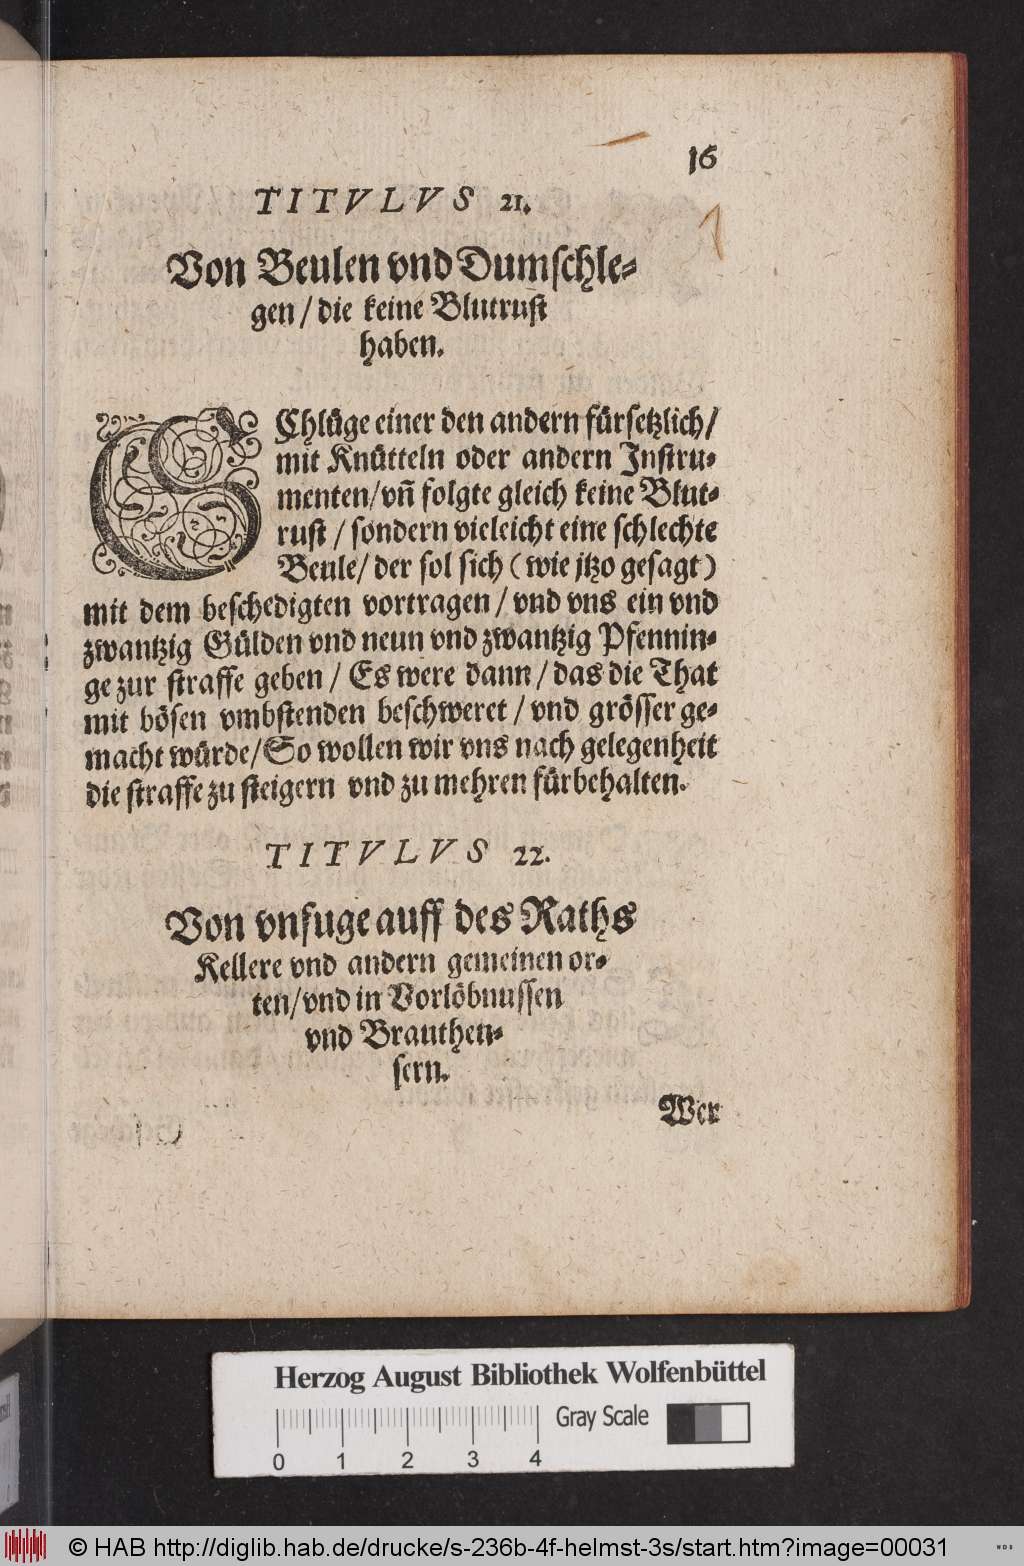 16
TITVLVS 21.
Von Beulen vnd Dumschle-
gen / die keine Blutrust
haben.
SChlüge einer den andern fürsetzlich /
mit Knütteln oder andern Instru-
menten / vn̄ folgte gleich keine Blut-
rust / sondern vieleicht eine schlechte
Beule / der sol sich ( wie jtzo gesagt )
mit dem beschedigten vortragen / vnd vns ein vnd
zwantzig Gülden vnd neun vnd zwantzig Pfennin-
ge zur straffe geben / Es were dann / das die That
mit bösen vmbstenden beschweret / vnd grösser ge-
macht würde / So wollen wir vns nach gelegenheit
die straffe zu steigern vnd zu mehren fürbehalten.
TITVLVS 22.
Von vnfuge auff des Raths
Kellere vnd andern gemeinen or-
ten / vnd in Vorlöbnussen
vnd Brautheu-
sern.
Wer
Herzog August Bibliothek Wolfenbüttel
Gray Scale
0 1 2 3 4
© HAB http://diglib.hab.de/drucke/s-236b-4f-helmst-3s/start.htm?image=00031